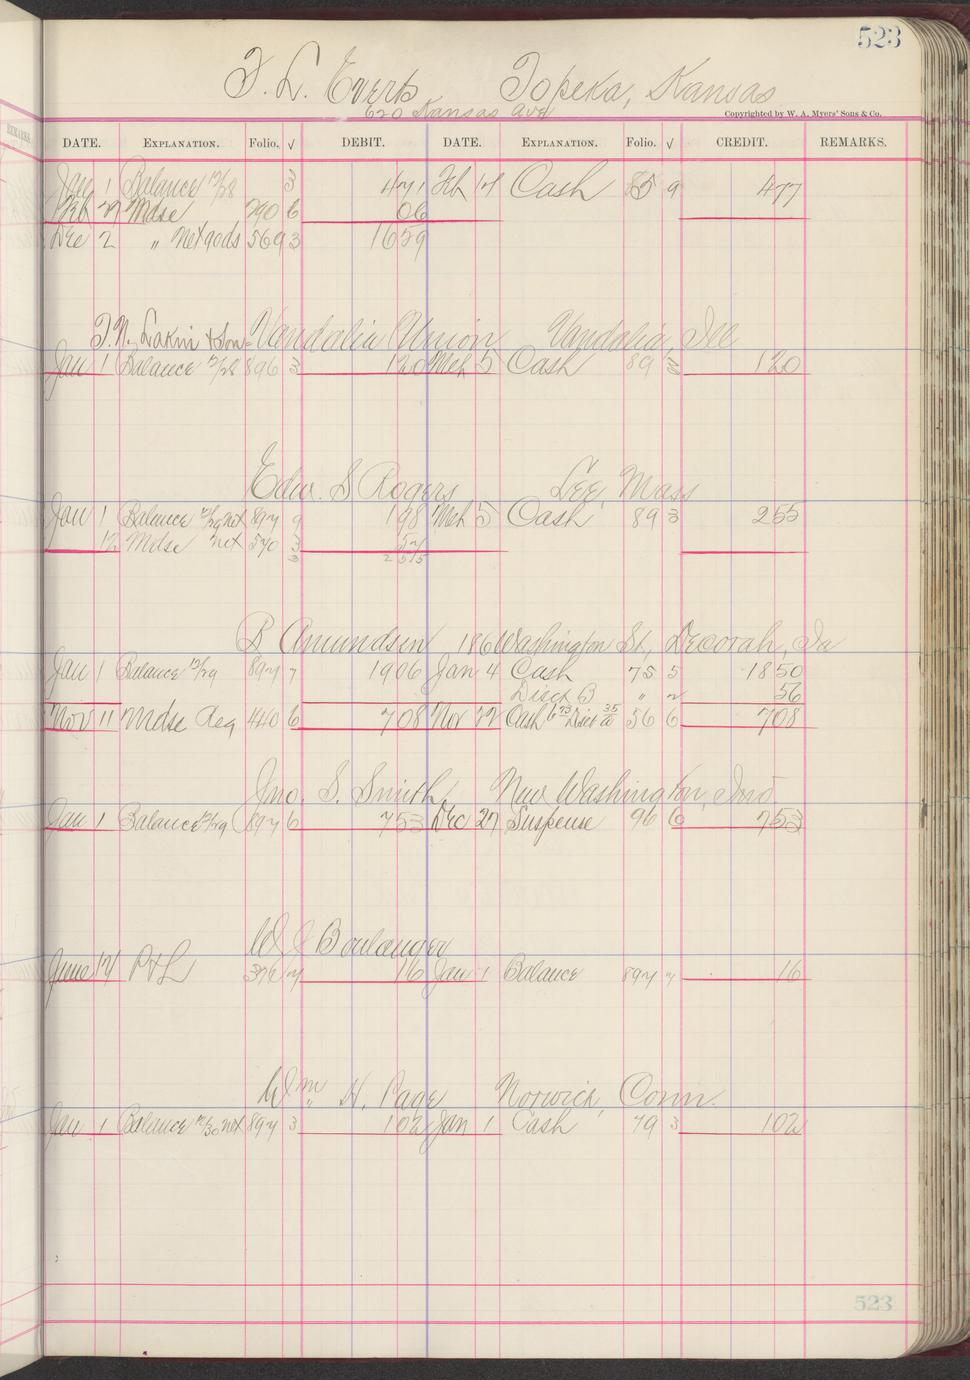 523
F. L. Everts Topeka, Kansas
620 Kansas Ave
Copyrighted by W. A. Myers' Sons & Co.
DATE. EXPLANATION. Folio. √ DEBIT. DATE. EXPLANATION. Folio. √ CREDIT. REMARKS.
Jan 1 Balance 12/28 3 471 Feb 14 Cash 85 9 477
Feb 27 Mdse 290 6 06
Dec 2 " net gods 569 3 1659
T. N. Lakin & Son - Vandalia Union Vandalia, Ill
Jan 1 Balance 12/28 896 3 120 Mch 5 Cash 89 3 120
Edw. S Rogers Lee, Mass
Jan 1 Balance 12/29 net 897 9 198 Mch 5 Cash 89 3 255
12 Mdse net 540 3 57
3 255
B Amundsen 186 Washington St, Decorah, Ia
Jan 1 Balance 12/29 897 7 1906 Jan 4 Cash 75 5 1850
Disct B " 2 56
Nov 11 Mdse Aeg 440 6 708 Nov 22 Cash 6 73 Disct 35 56 6 708
Jno. S. Smith, New Washington, Ind
Jan 1 Balance 12/29 897 6 753 Dec 27 Suspense 96 6 753
W J Boulanger
June 14 P & L 376 7 16 Jan 1 Balance 897 7 16
Wm H. Page Norwich, Conn.
Jan 1 Balance 12/30 net 897 3 102 Jan 1 Cash 79 3 102
523